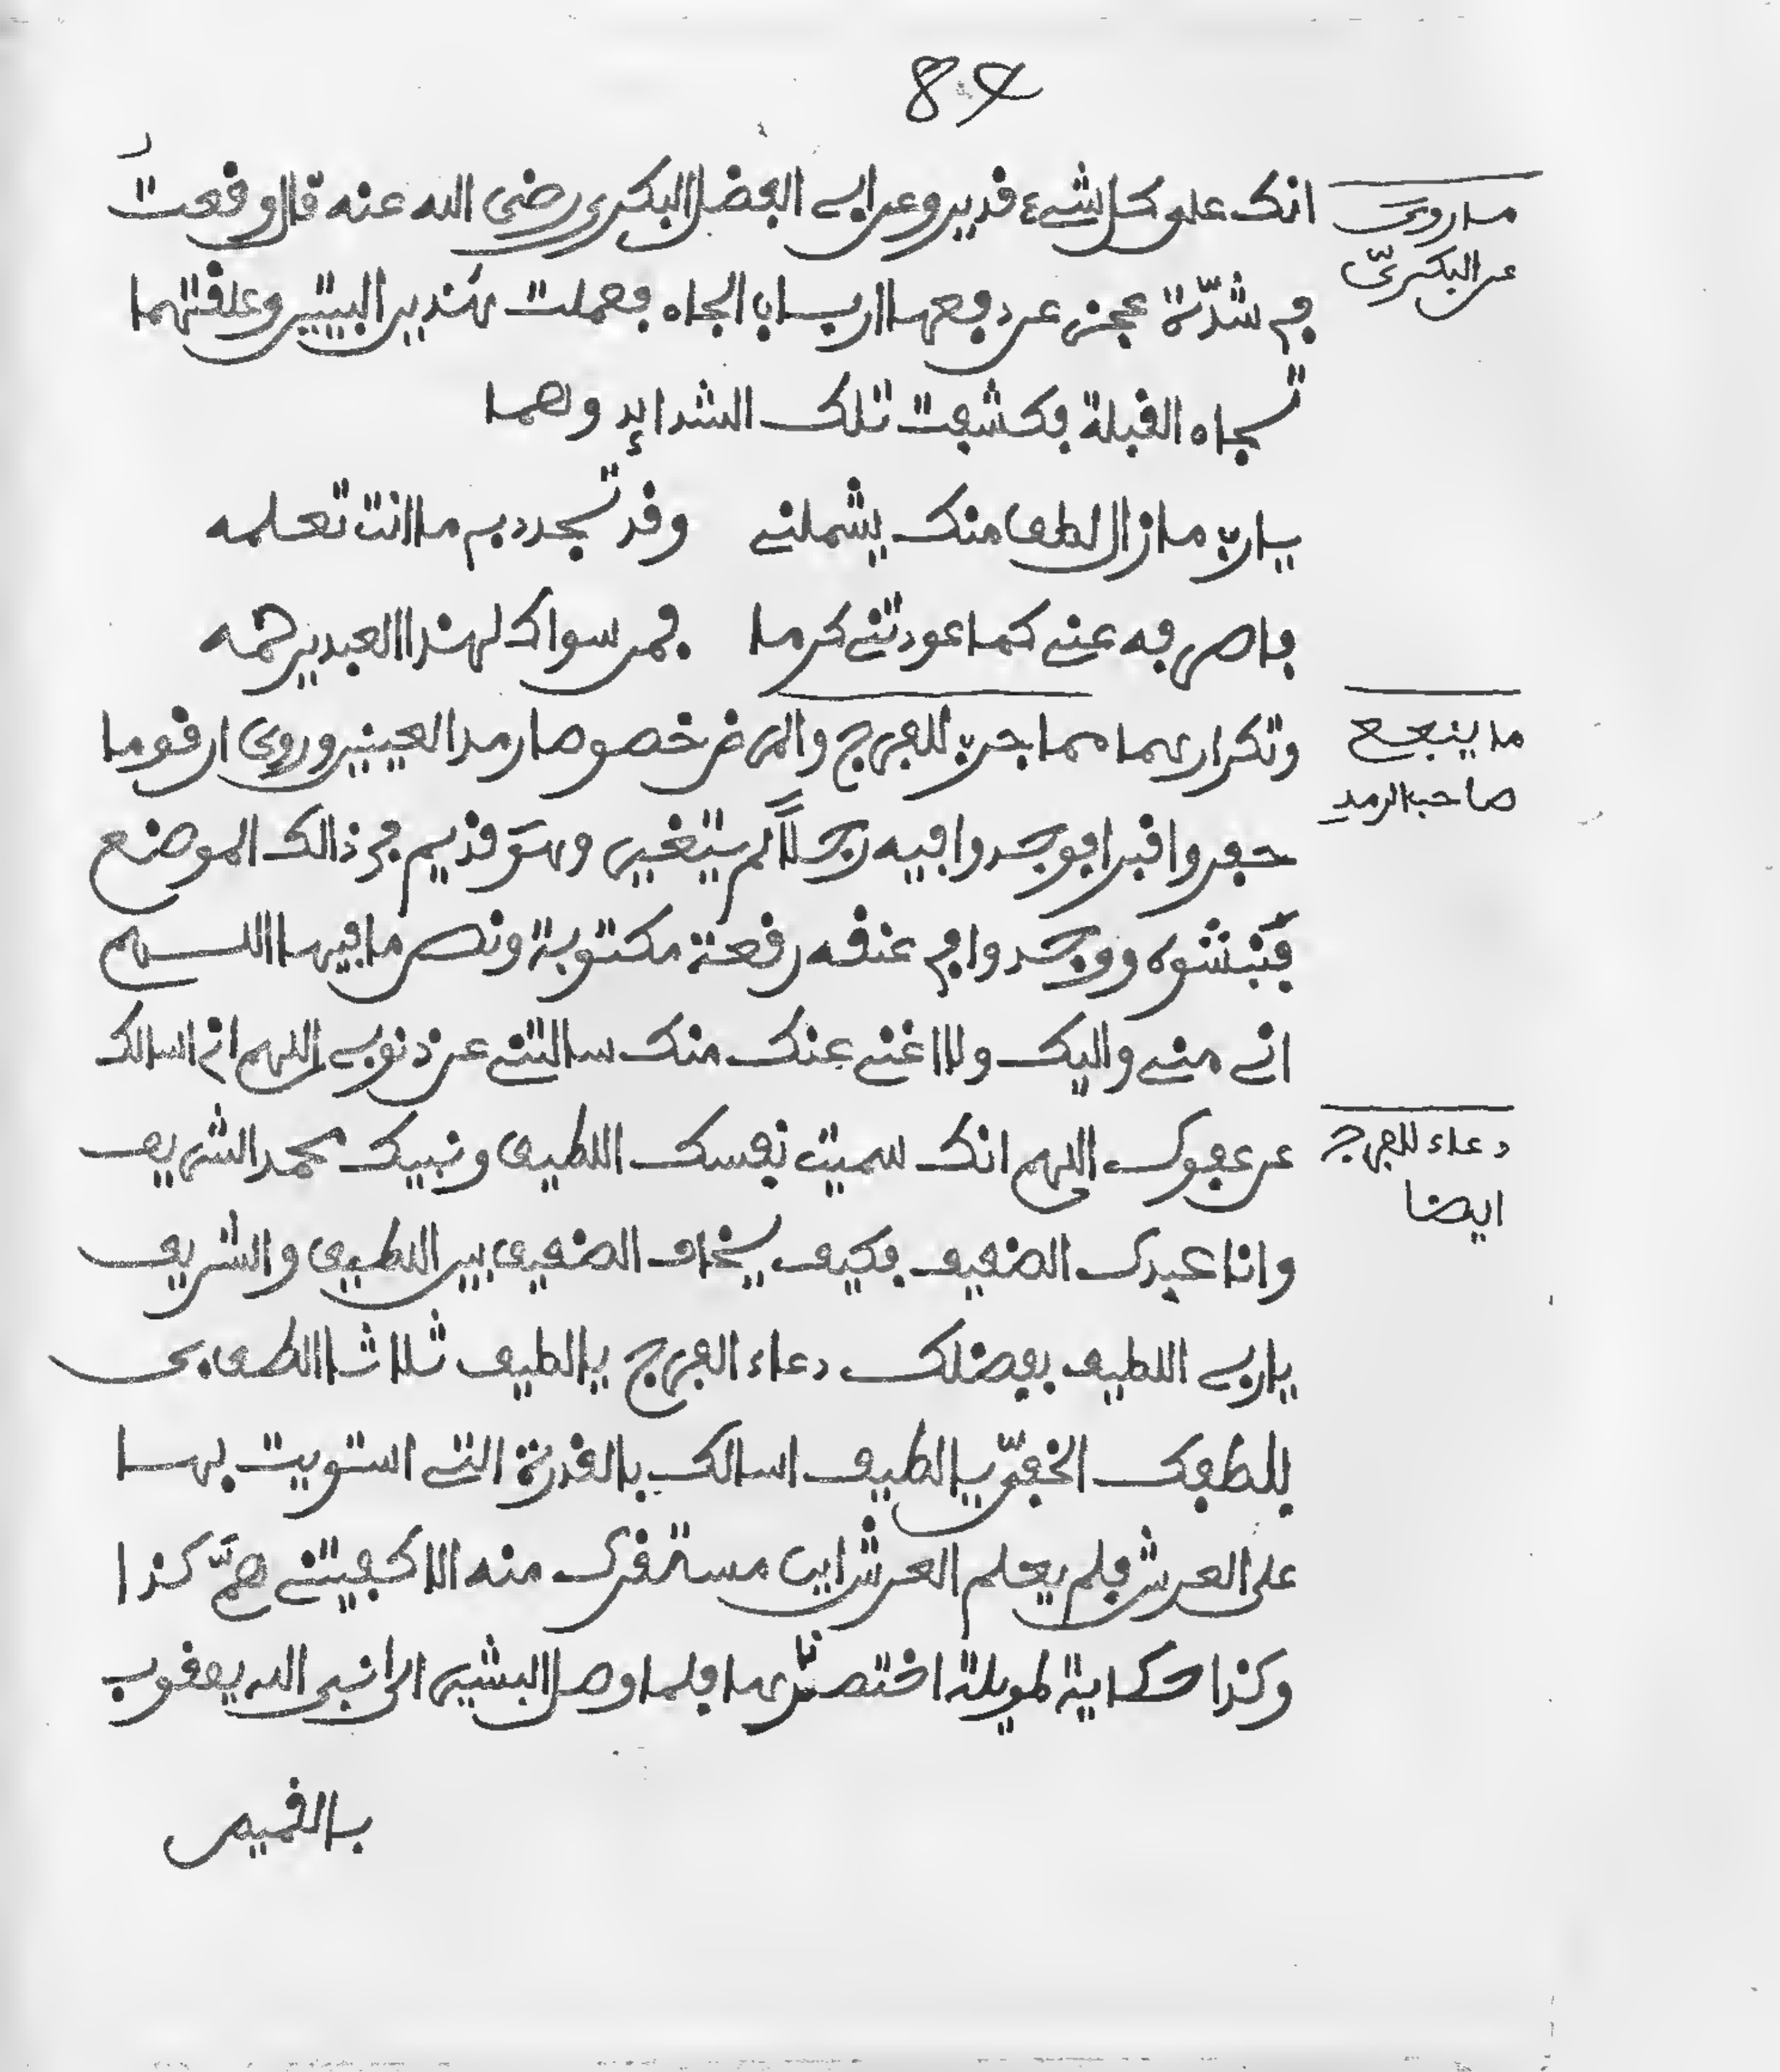 84
انك على كل شيء قدير وعن ابي الفضل البكري رضي الله عنه قال وقعت
ما روي
عن البكريّ
في شدّة عجز عن دفعها ارباب الجاه فعملت هذين البيتين وعلقتهما
تجاه القبلة فكشفت تلك الشدايد وهما
يا ربّ ما زال لطف منك يشملني وقد تجدد بي ما انت تعلمه
فاصرفه عني كما عودتني كرما فمن سواك لهذا العبد يرحمه
وتكرارهما مما جربّ للفرج والمرض خصوصا رمد العينين وروي ان قوما
ما ينفع
صاحب الرمد
حفروا قبرا فوجدوا فيه رَجلاً لم يتغير وهوَ قديم في ذالك الموضع
فنبشوه ووجدوا في عنقه رقعة مكتوبة ونص ما فيها اللهم
اني مني واليك ولا اغنى عنك منك سالتني عن ذنوبي اللهم اني اسالك
عن عفوك اللهم انك سميت نفسك اللطيف ونبيك محمد الشريف
دعاء للفرج
ايضا
وانا عبدك الضعيف فكيف يخاف الضعيف بين اللطيف والشريف
يا ربي اللطيف بفضلك دعاء الفرج يا لطيف ثلاثا الطف بي
بلطفك الخفيّ يا لطيف اسالك بالقدرة التي استويت بها
على العرش فلم يعلم العرش اين مستقرك منه الا كفيتني همّ كذا
وكذا حكاية طويلة اختصرتها فلما وصل البشير الى نبي الله يعقوب
بالقميص